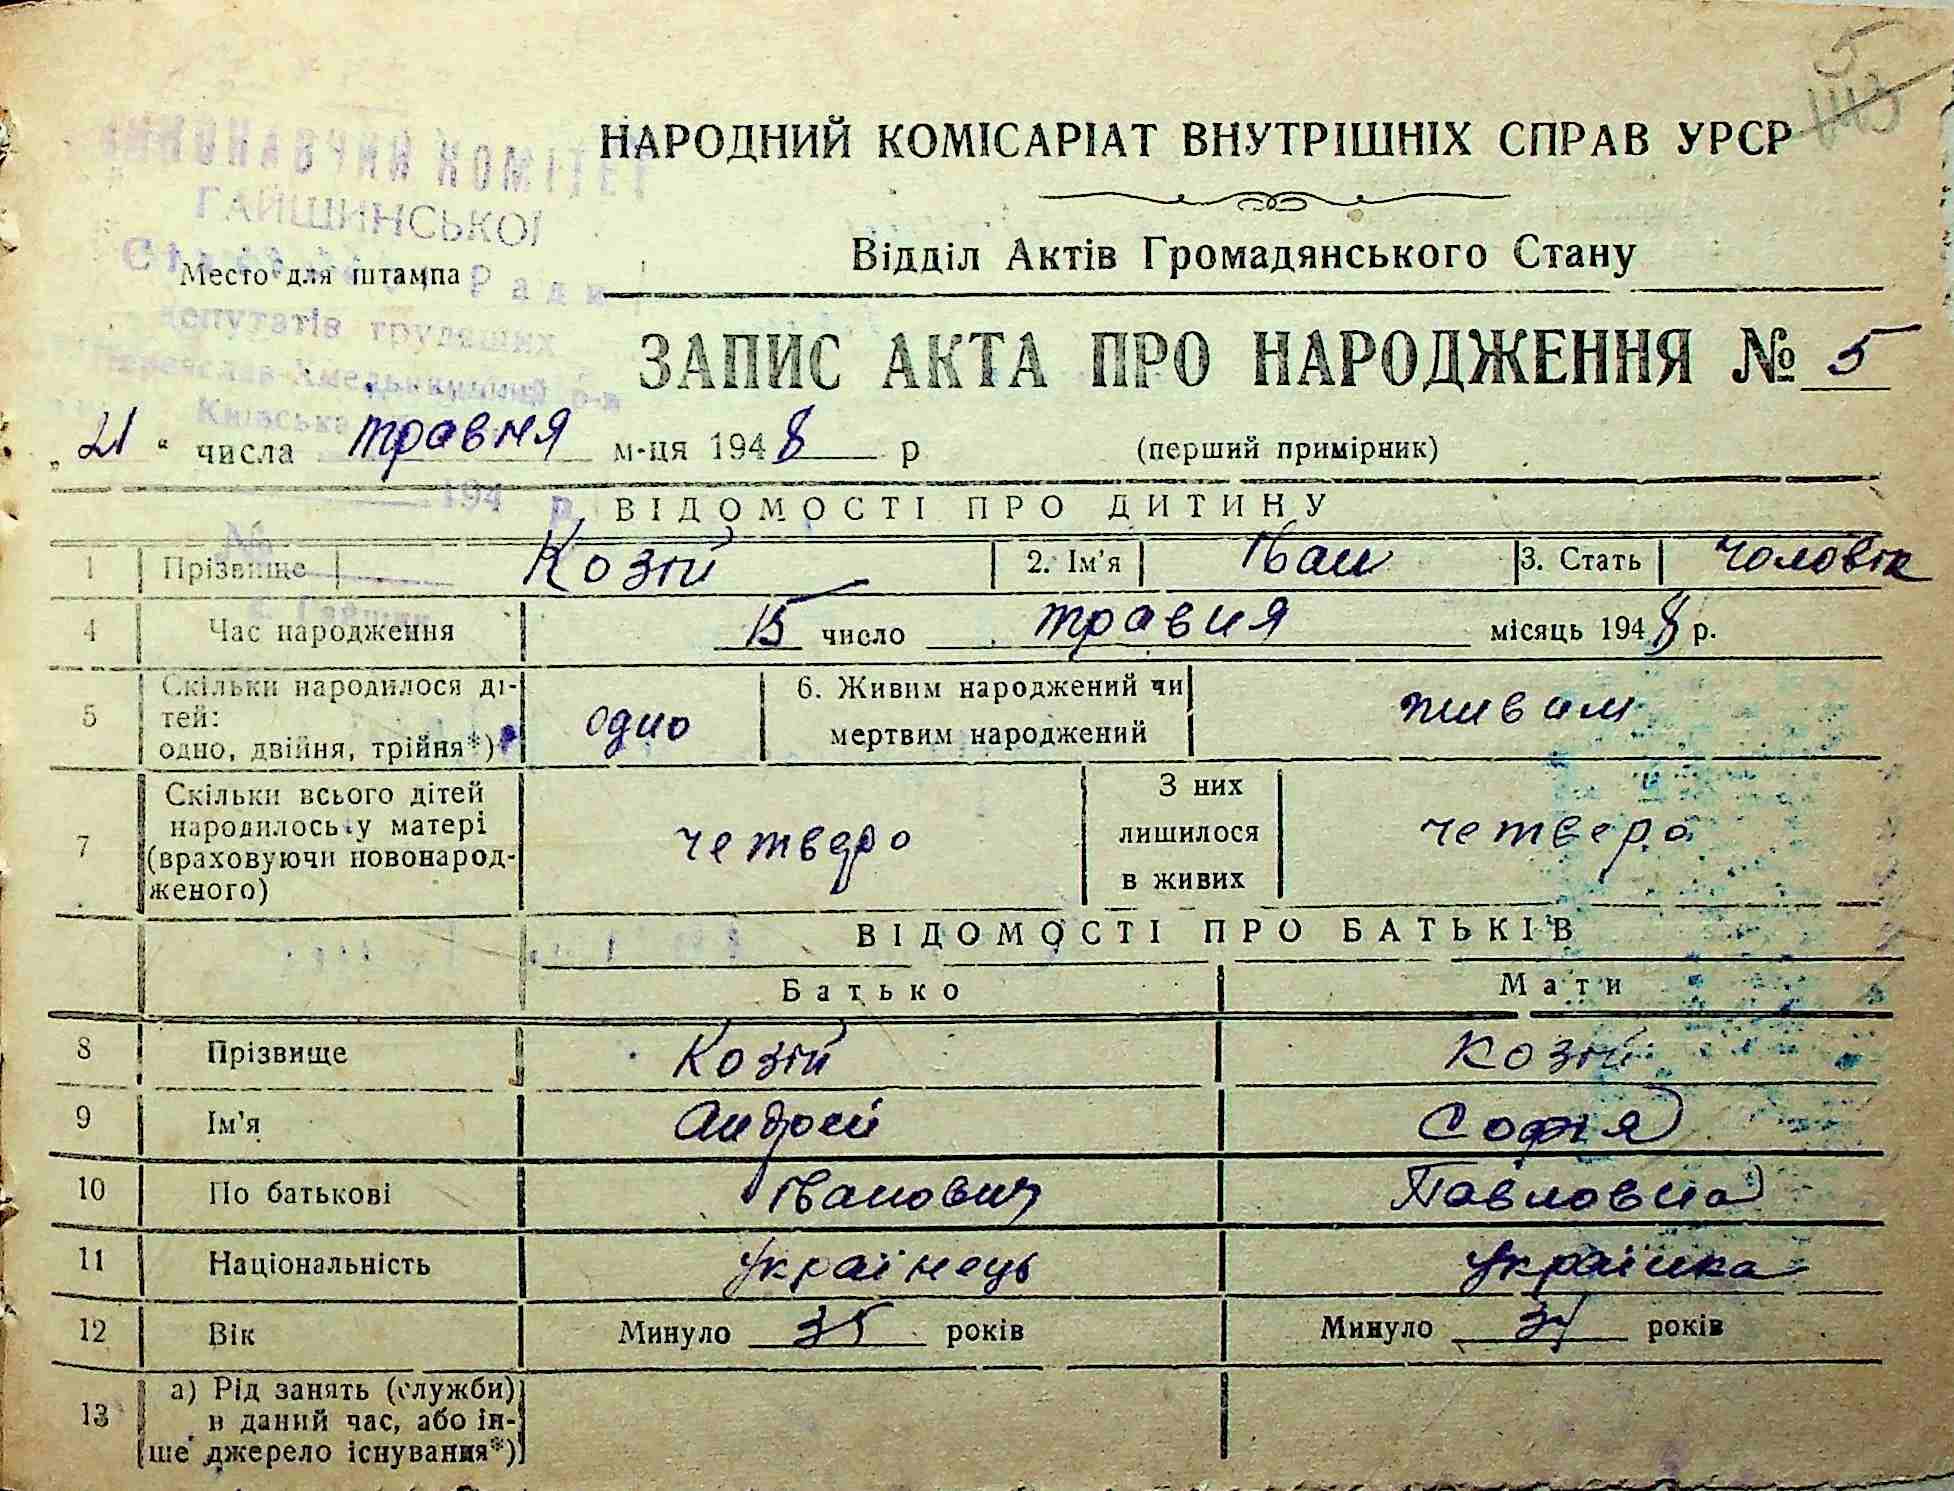 5
ВИКОНАВЧИЙ КОМІТЕТ
ГАЙШИНСЬКОЇ
Ради
депутатів трудящих
Переяслав-Хмельницький р-н
Київська
194 р.
№
с. Гайшин
НАРОДНИЙ КОМІСАРІАТ ВНУТРІШНІХ СПРАВ УРСР
Відділ Актів Громадянського Стану
Место для штампа
ЗАПИС АКТА ПРО НАРОДЖЕННЯ № 5
„ 21 “ числа травня м-ця 1948 р (перший примірник)
ВІДОМОСТІ ПРО ДИТИНУ
1 Прізвище Козій 2. Ім'я Іван 3. Стать чоловік
4 Час народження 15 число травня місяць 1948 р.
5 Скільки народилося ді-
тей:
одно, двійня, трійня*) одно 6. Живим народжений чи
мертвим народжений живим
7 Скільки всього дітей
народилось у матері
(враховуючи новонарод-
женого) четверо З них
лишилося
в живих четверо
ВІДОМОСТІ ПРО БАТЬКІВ
Батько Мати
8 Прізвище Козій Козій
9 Ім'я Андрій Софія
10 По батькові Іванович Павловна
11 Національність Українець українка
12 Вік Минуло 35 років Минуло років
13 а) Рід занять (служби)
в даний час, або ін-
ше джерело існування*)